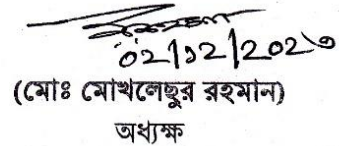 02/12/2023
(মোঃ মোখলেছুর রহমান)
অধ্যক্ষ